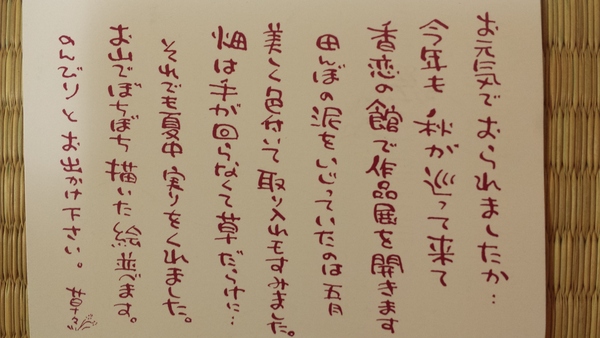 お元気でおられましたか…
今年も 秋が巡って来て
香恋の館で作品展を開きます
田んぼの泥をいじっていたのは五月
美しく色付いて取り入れもすみました。
畑は手が回らなくて草だらけに…
それでも夏中 実りをくれました。
お山でぼちぼち描いた絵並べます。
のんびりとお出かけ下さい。
草々